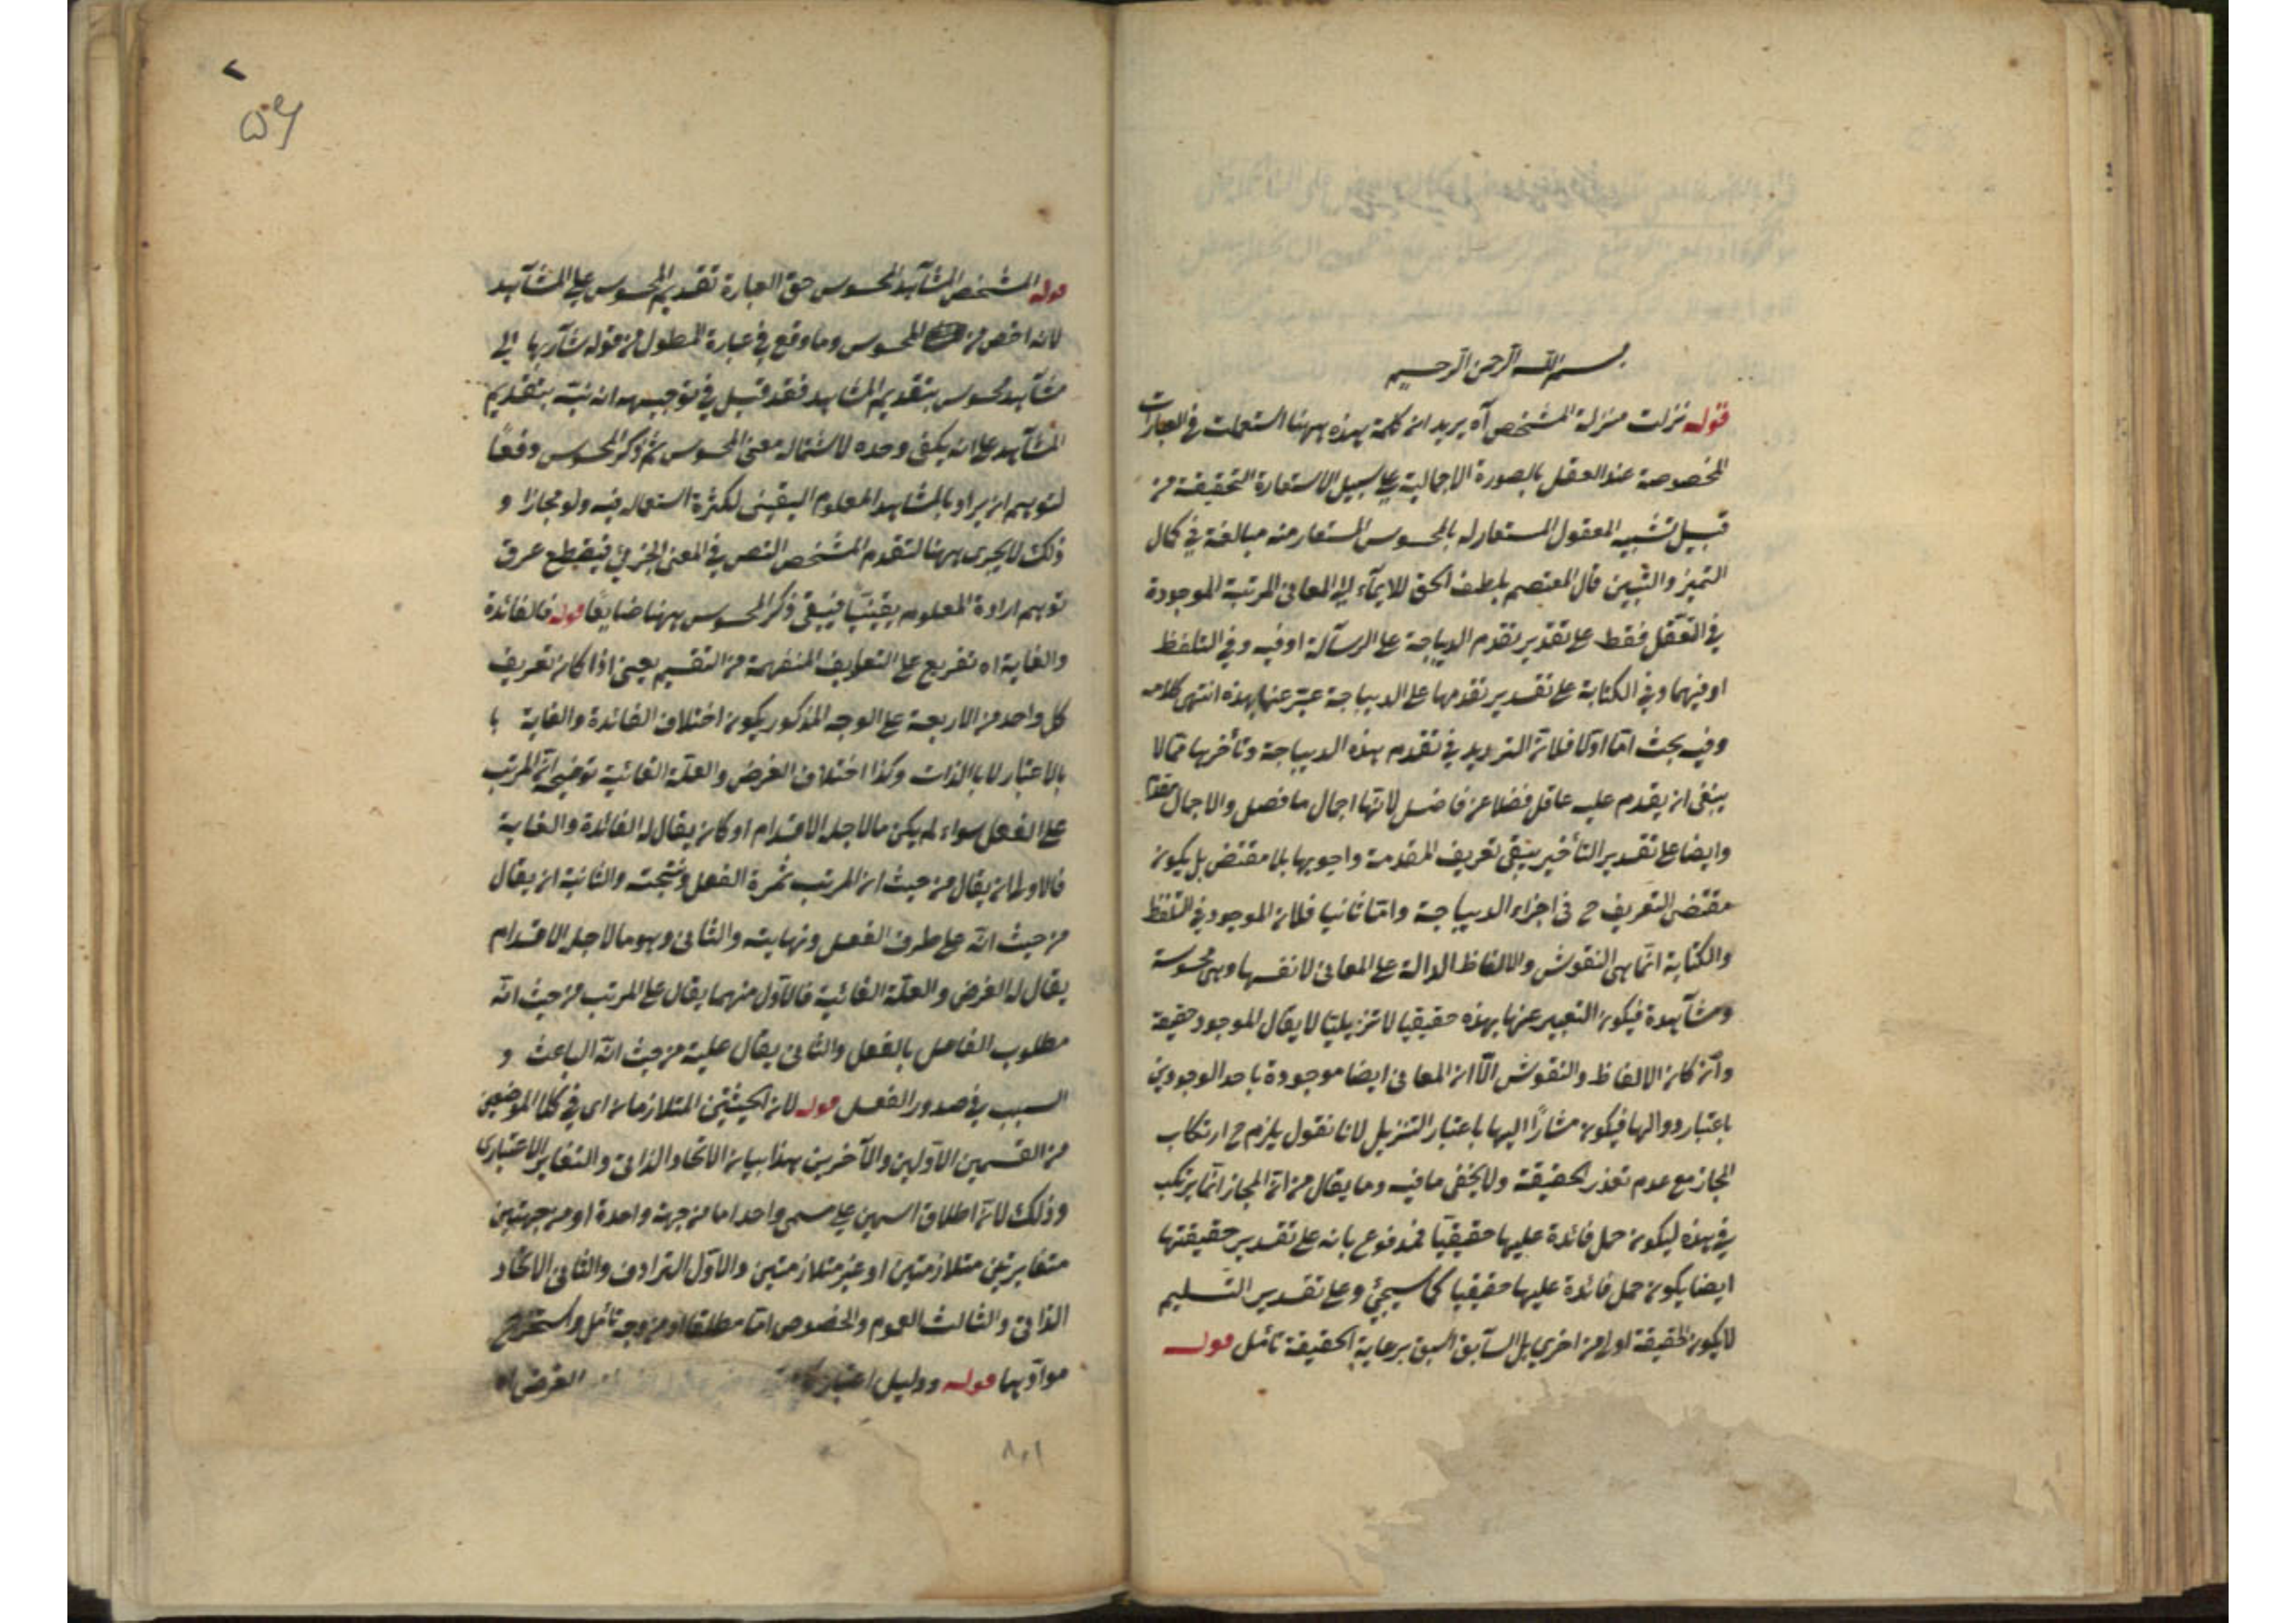 بسم الله الرحمن الرحيم
قوله نزلت منزلة المشخص آه يريد ان كلمة هذه ههنا استعملت في العبارات
المخصوصة عند العقل بالصورة الاجمالية على سبيل الاستعارة التحقيقية من
قبيل تشبيه المعقول المستعار له بالمحسوس المستعار منه مبالغة في كمال
التميز والتبين قال المعتصم بلطف الحق للايمآء الى المعانى المرتبة الموجودة
في التعقل فقط على تقدير تقدم الديباجة على الرسآلة او فيه وفي التلفظ
او فيهما وفي الكتابة على تقدير تقدمها على الديباجة عبّر عنها بهذه انتهى كلامه
وفيه بحث امّا اولا فلانّ الترديد في تقدم هذه الديباجة وتأخرها ممّا لا
ينبغى ان يقدم عليه عاقل فضلا عن فاضل لانّها اجمال ما فصل والاجمال مقدم
وايضا على تقدير التأخير يبقى تعريف المقدمة واجوبها بلا مقتض بل يكون
مقتضى التعريف ح فى اجزاء الديباجة وامّا ثانيا فلان الموجود في التلفظ
والكتابة انّما هى النقوش والالفاظ الدالة على المعانى لانفسها وهى محسوسة
ومشآهدة فيكون التعبير عنها بهذه حقيقيا لا تنزيليّا لا يقال الموجود حقيقة
وان كان الالفاظ والنقوش الّا ان المعانى ايضا موجودة باحد الوجودين
باعتبار دوالها فيكون مشارًا اليها باعتبار التنزيل لانا نقول يلزم ح ارتكاب
المجاز مع عدم تعذر الحقيقة ولا يخفى ما فيه وما يقال من انّ المجاز انّما يرتكب
في هذه ليكون حمل فائدة عليها حقيقيّا فمدفوع بانه على تقدير حقيقتها
ايضا يكون حمل فائدة عليها حقيقيا كما سيجئ وعلى تقدير التسليم
لا يكون حقيقة اولى من اخرى بل السآبق اسبق برعاية الحقيقة تأمل قوله
٥٦
قوله المشخص المشآهد المحسوس حق العبارة تقديم المحسوس على المشآهد
لانه اخص من المحسوس وما وقع في عبارة المطول من قوله شآر بها الى
مشآهد محسوس بتقديم المشاهد فقد قيل في توجيهه انه نبّه بتقديم
المشآهد على انه يكفى وحده لاشتماله معنى المحسوس ثم ذكر المحسوس دفعًا
لتوهم ان يراد بالمشاهد المعلوم اليقينى لكثرة استعماله فيه ولو مجازا و
ذلك لا يجرى ههنا لتقدم المشخص النص في المعنى الجزئى فينقطع عرق
توهم ارادة المعلوم يقينيّا فيبقى ذكر المحسوس ههنا ضايعًا قوله فالفائدة
والغاية اه تفريع على التعاريف المنفهمة من التقسيم يعنى اذا كان تعريف
كل واحد من الاربعة على الوجه المذكور يكون اختلاف الفائدة والغاية با
بالاعتبار لا بالذات وكذا اختلاف الغرض والعلّة الغائية توضيحه انّ المرتب
على الفعل سواء لم يكن ما لاجله الاقدام او كان يقال له الفائدة والغاية
فالاولى ان يقال من حيث ان المرتب ثمرة الفعل ونتيجته والثانية ان يقال
من حيث انّه على طرف الفعل ونهايته والثانى وهو ما لاجله الاقدام
يقال له الغرض والعلّة الغائية فالاوّل منهما يقال على المرتب من حيث انّه
مطلوب الفاعل بالفعل والثانى يقال عليه من حيث انّه الباعث و
السبب في صدور الفعل قوله لان الحيثيتين المتلازمان اى في كلا الموضعين
من القسمين الاوّلين والآخرين هذا بيان الاتحاد الذاتى والتغاير الاعتبارى
وذلك لانّ اطلاق اسمين على مسمى واحد اما من جهة واحدة او من جهتين
متغايرتين متلازمتين او غير متلازمتين والاوّل الترادف والثانى الاتحاد
الذاتى والثالث العموم والخصوص امّا مطلقا او من وجه تأمل واستخرج
موادّها قوله ودليل اعتبار الغرض اه
٨٠١